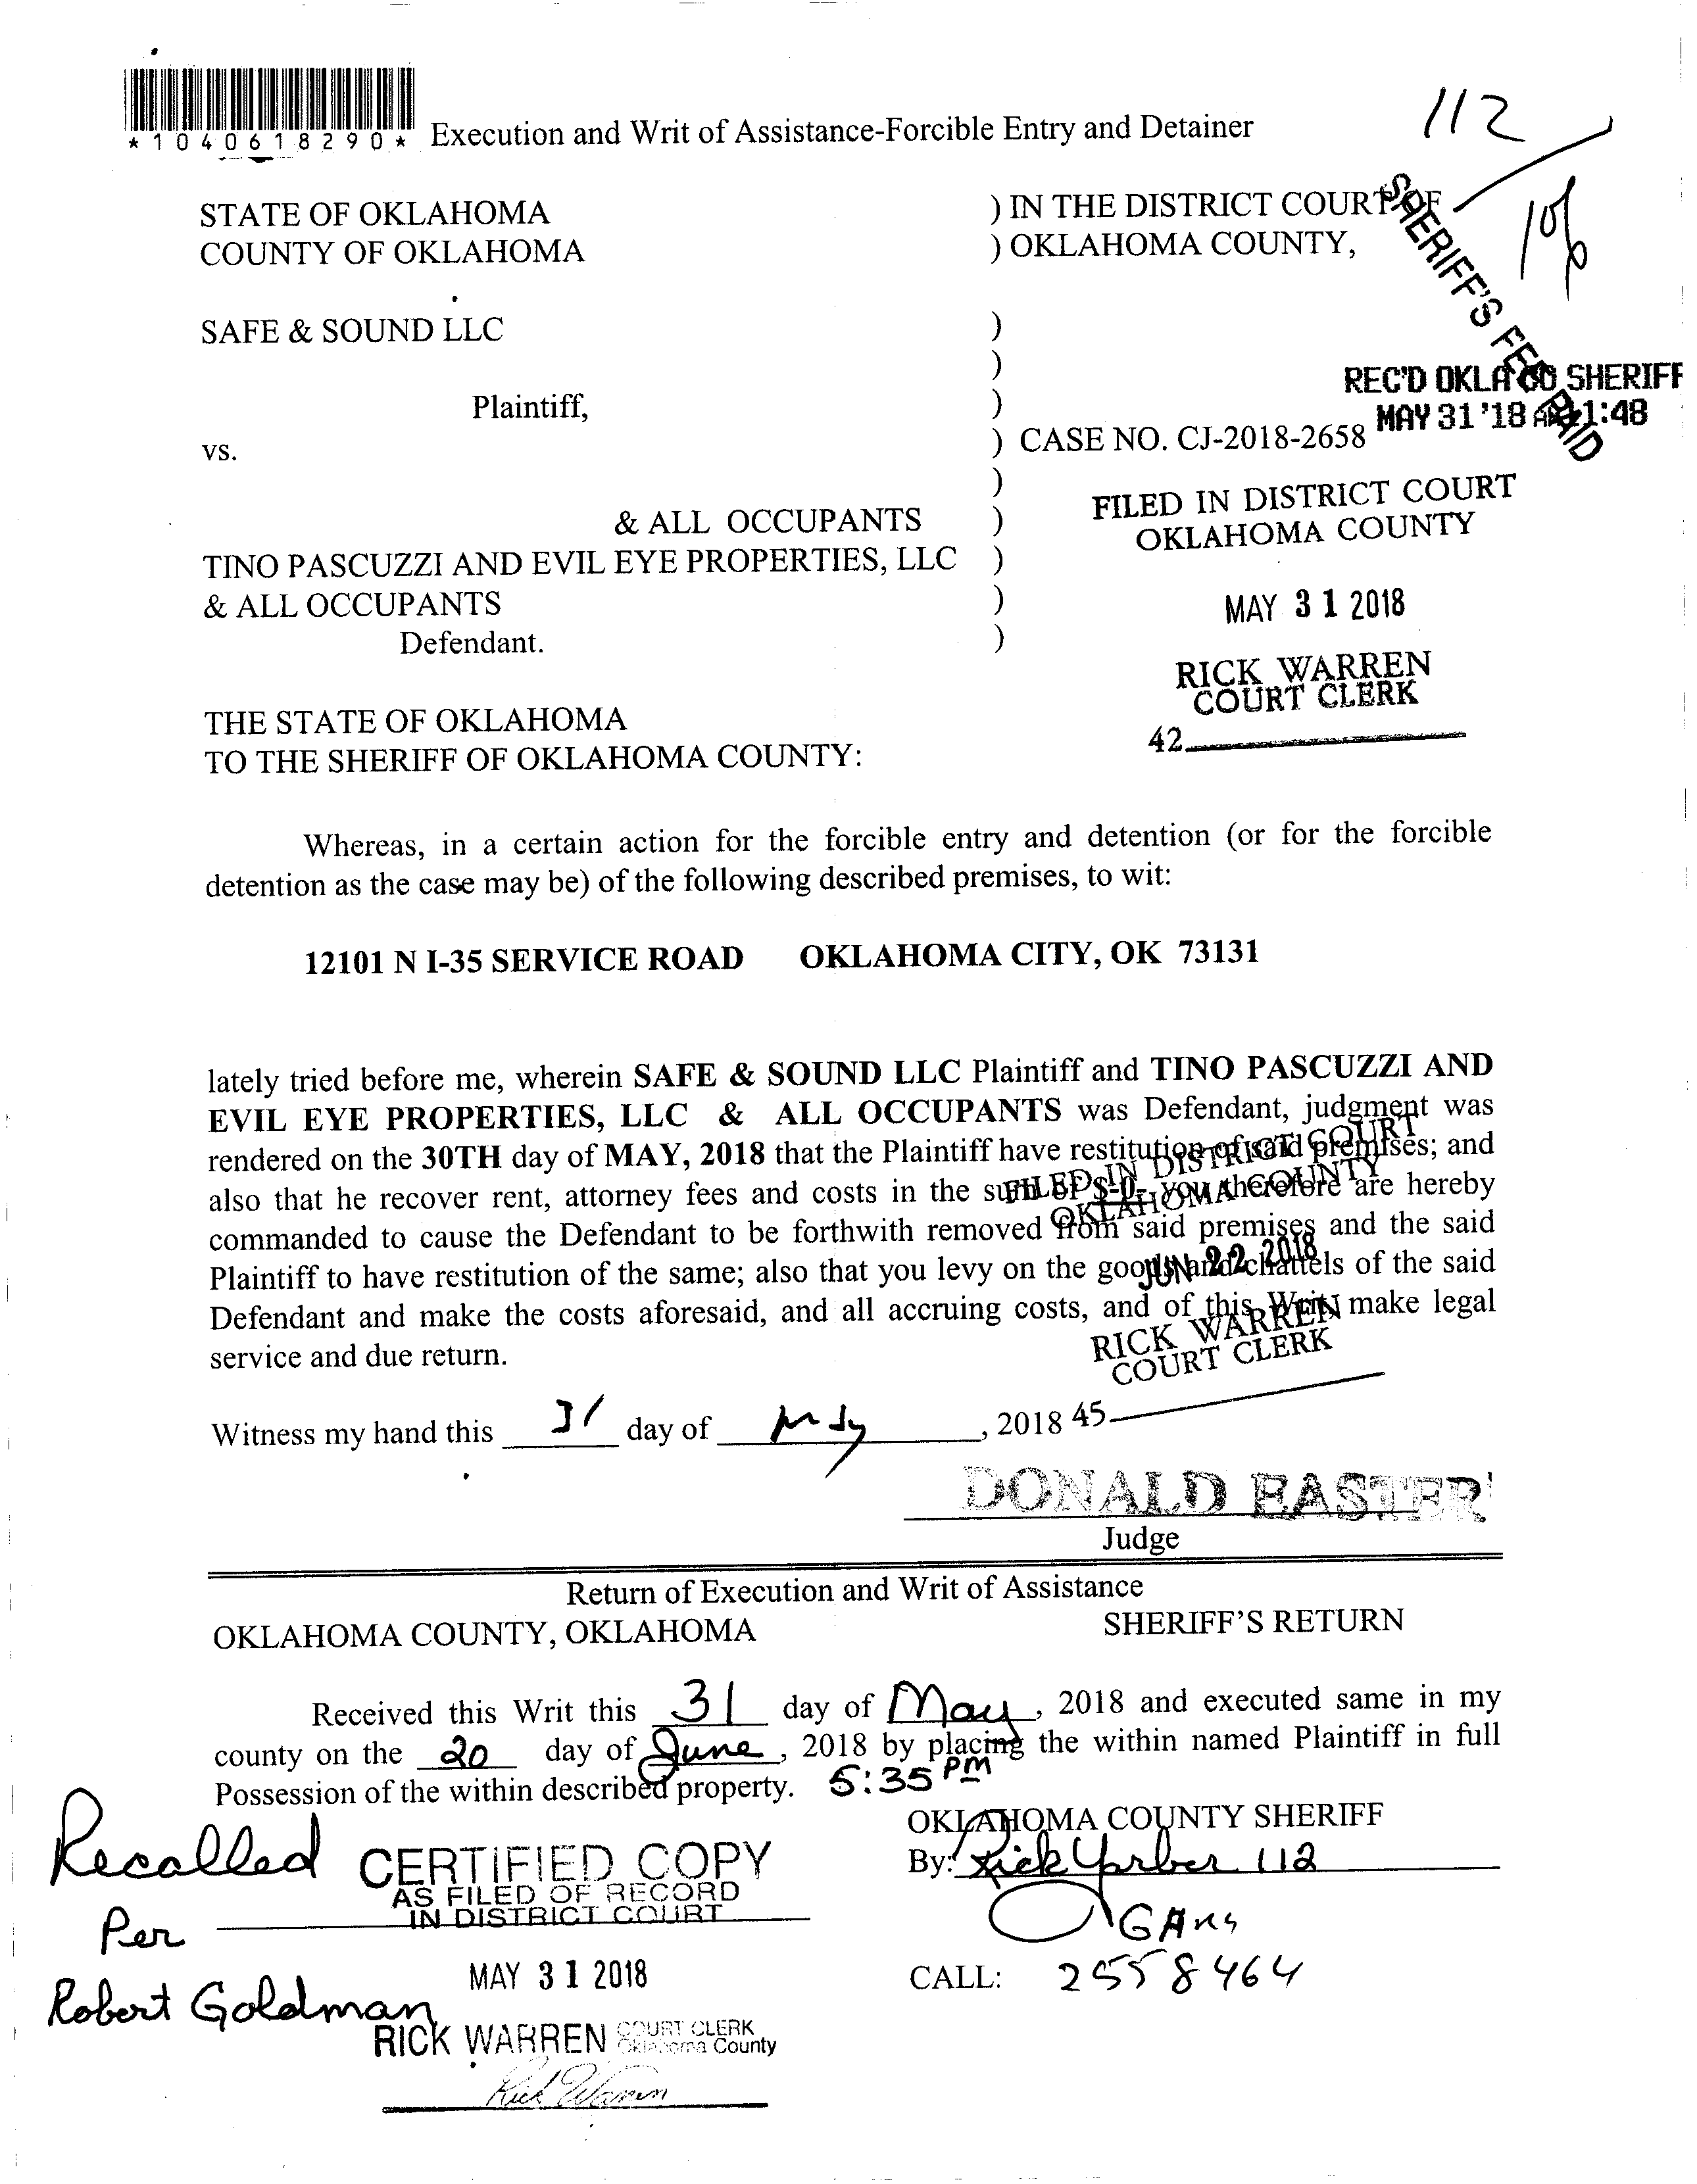 *1040618290*
Execution and Writ of Assistance-Forcible Entry and Detainer
112
STATE OF OKLAHOMA ) IN THE DISTRICT COURT OF
COUNTY OF OKLAHOMA ) OKLAHOMA COUNTY,
SHERIFF'S FEE PAID
SAFE & SOUND LLC )
)
REC'D OKLA CO SHERIFF
Plaintiff, )
MAY 31 '18 AM11:48
vs. ) CASE NO. CJ-2018-2658
)
FILED IN DISTRICT COURT
& ALL OCCUPANTS )
OKLAHOMA COUNTY
TINO PASCUZZI AND EVIL EYE PROPERTIES, LLC )
& ALL OCCUPANTS )
MAY 31 2018
Defendant. )
RICK WARREN
COURT CLERK
THE STATE OF OKLAHOMA
42
TO THE SHERIFF OF OKLAHOMA COUNTY:
Whereas, in a certain action for the forcible entry and detention (or for the forcible
detention as the case may be) of the following described premises, to wit:
12101 N I-35 SERVICE ROAD OKLAHOMA CITY, OK 73131
lately tried before me, wherein SAFE & SOUND LLC Plaintiff and TINO PASCUZZI AND
EVIL EYE PROPERTIES, LLC & ALL OCCUPANTS was Defendant, judgment was
rendered on the 30TH day of MAY, 2018 that the Plaintiff have restitution of said premises; and
also that he recover rent, attorney fees and costs in the sum of $-0- you therefore are hereby
commanded to cause the Defendant to be forthwith removed from said premises and the said
Plaintiff to have restitution of the same; also that you levy on the goods and chattels of the said
Defendant and make the costs aforesaid, and all accruing costs, and of this Writ, make legal
service and due return.
FILED IN DISTRICT COURT
OKLAHOMA COUNTY
JUN 22 2018
RICK WARREN
COURT CLERK
45
Witness my hand this 31 day of May, 2018
DONALD EASTER
Judge
Return of Execution and Writ of Assistance
OKLAHOMA COUNTY, OKLAHOMA SHERIFF'S RETURN
Received this Writ this 31 day of May, 2018 and executed same in my
county on the 20 day of June, 2018 by placing the within named Plaintiff in full
Possession of the within described property. 5:35 PM
OKLAHOMA COUNTY SHERIFF
By: Rick Yarber 112
Recalled
Per
Robert Goldman
CERTIFIED COPY
AS FILED OF RECORD
IN DISTRICT COURT
MAY 31 2018
RICK WARREN COURT CLERK
Oklahoma County
Rick Warren
CALL: 255 8464